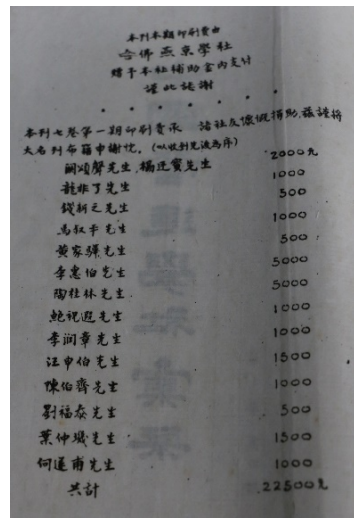 本刊本期印刷費由
哈佛燕京學社
贈予本社補助金内支付
謹此誌謝
本刊七卷第一期印刷費承 諸社友慷慨捐助,茲謹將
大名列布藉申謝忱,(以收到先後為序)
關頌聲先生,楊廷寶先生 2000元
龍非了先生 1000
錢新之先生 500
馬叔平先生 1000
黄家驊先生 500
李惠伯先生 5000
陶桂林先生 5000
鮑祝遐先生 1000
李潤章先生 1000
汪申伯先生 1500
陳伯齊先生 1000
劉福泰先生 500
葉仲璣先生 1500
何遂甫先生 1000
共計 22500元